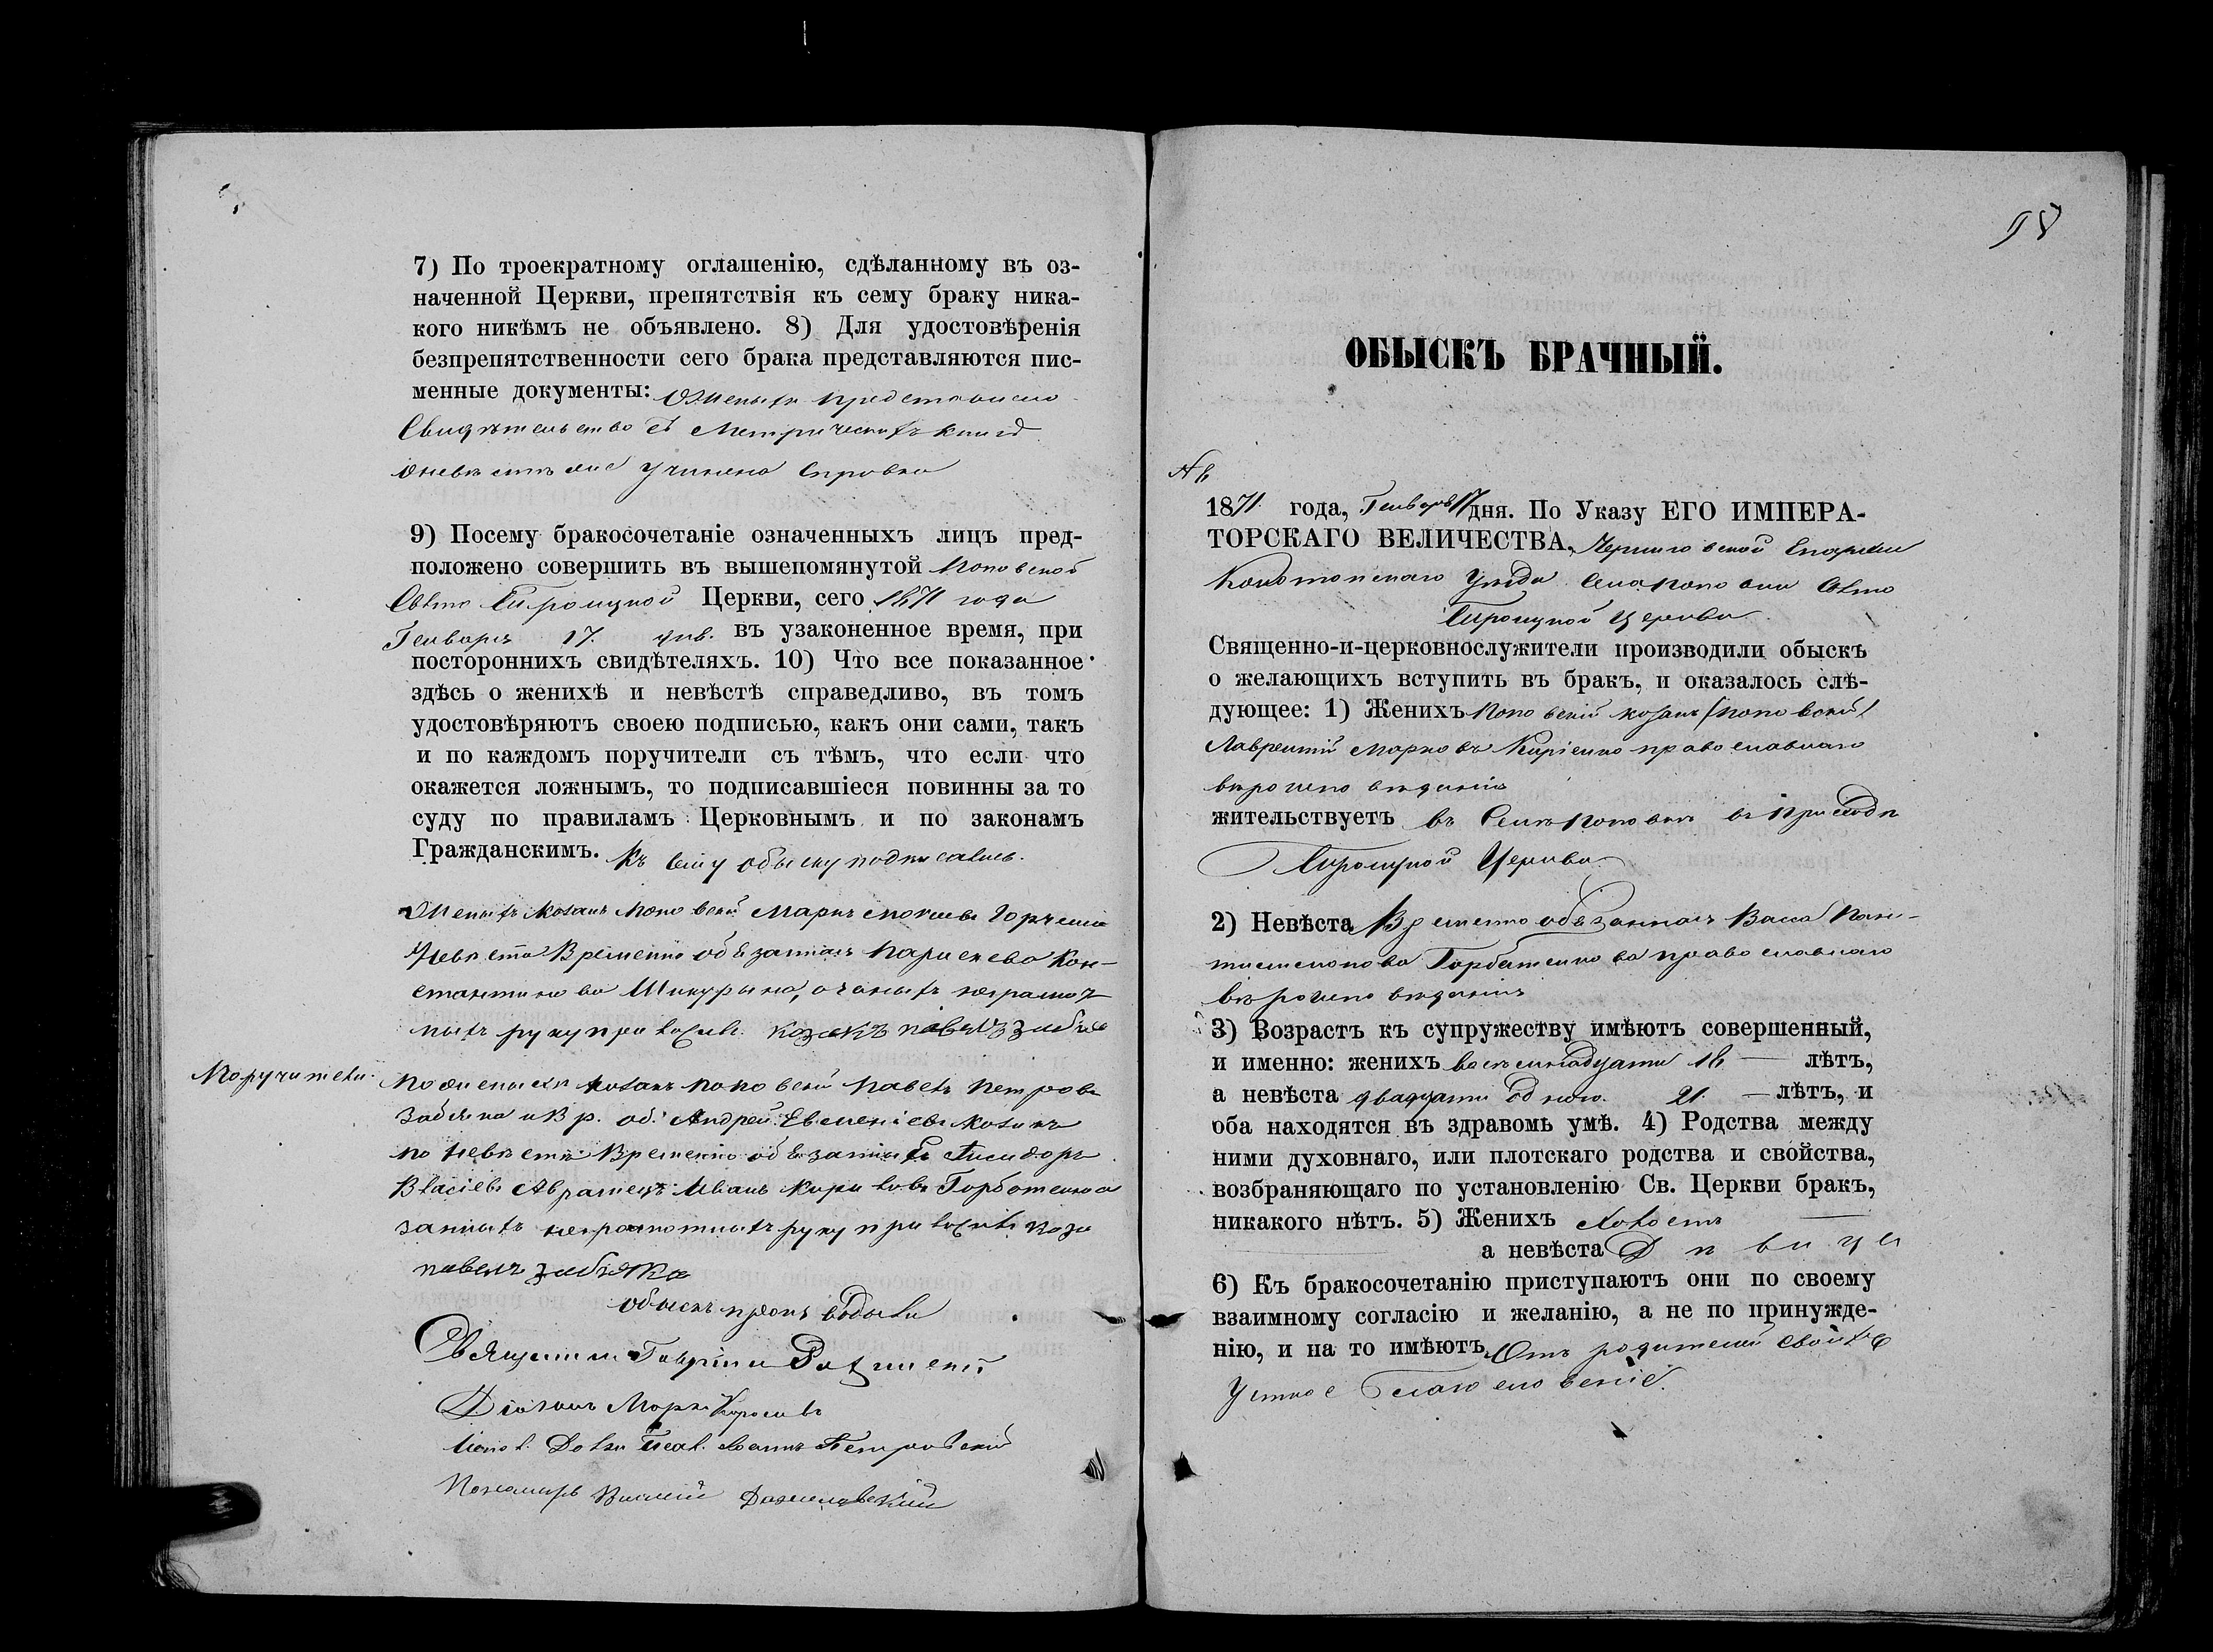 7) По троекратному оглашенію, сдѣланному въ оз-
наченной Церкви, препятствія къ сему браку ника-
кого никѣмъ не объявлено. 8) Для удостовѣренія
безпрепятственности сего брака представляются пис-
менные документы: Женихъ представилъ
Свидѣтельство о Метрическихъ книгъ
Оневѣстѣ учинена Справка
9) Посему бракосочетаніе означенныхъ лицъ пред-
положено совершить въ вышепомянутой Поповской
Свято Троицкой Церкви, сего 1871 года
Генваря 17. дня. въ узаконенное время, при
постороннихъ свидѣтеляхъ. 10) Что все показанное
здѣсь о женихѣ и невѣстѣ справедливо, въ томъ
удостовѣряютъ своею подписью, какъ они сами, такъ
и по каждомъ поручители съ тѣмъ, что если что
окажется ложнымъ, то подписавшіеся повинны за то
суду по правиламъ Церковнымъ и по законамъ
Гражданскимъ. Къ сему обыску подписались.
Женихъ Козакъ Поповскій Маркъ
Невѣста Временно обязанная Кон-
стантинова Шикурына, а за нихъ неграмот
ныхъ руку приложилъ козакъ павелъ забіяка
Поручители. По женихѣ козакъ поповскій Павелъ Петровъ
Забіяка и Вр. об. Андрей Козакъ
по невѣстѣ Временно обязанные Исидоръ
Власіевъ Иванъ Кириловъ Горбатенко а
за нихъ неграмотныхъ руку приложилъ коза
павелъ забіяка
обыскъ производили
Священник Гавріил
Діяконъ Марко
Іоаннъ Петровскій
Пономарь
ОБЫСКЪ БРАЧНЫЙ.
1871 года, Генваря 17 дня. По Указу ЕГО ИМПЕРА-
ТОРСКАГО ВЕЛИЧЕСТВА, Черниговской Епархіи
Конотопскаго Уѣзда Села Поповки Свято
Троицкой Церкви
Священно-и-церковнослужители производили обыскъ
о желающихъ вступить въ бракъ, и оказалось слѣ-
дующее: 1) Женихъ Поповскій козакъ
Лаврентій Марковъ Киріенко православнаго
вѣроисповѣданія
жительствуетъ въ Селѣ Поповкѣ въ приходѣ
Троицкой Церкви
2) Невѣста Временно обязанная Васса Пан-
телимонова Горбатенкова православнаго
вѣроисповѣданія
3) Возрастъ къ супружеству имѣютъ совершенный,
и именно: женихъ восемнадцати 18 — лѣтъ,
а невѣста двадцати одного. 21. — лѣтъ, и
оба находятся въ здравомъ умѣ. 4) Родства между
ними духовнаго, или плотскаго родства и свойства,
возбраняющаго по установленію Св. Церкви бракъ,
никакого нѣтъ. 5) Женихъ холостъ
а невѣста Дѣвица
6) Къ бракосочетанію приступаютъ они по своему
взаимному согласію и желанію, а не по принужде-
нію, и на то имѣютъ Отъ родителей своихъ
Устное Благословеніе.